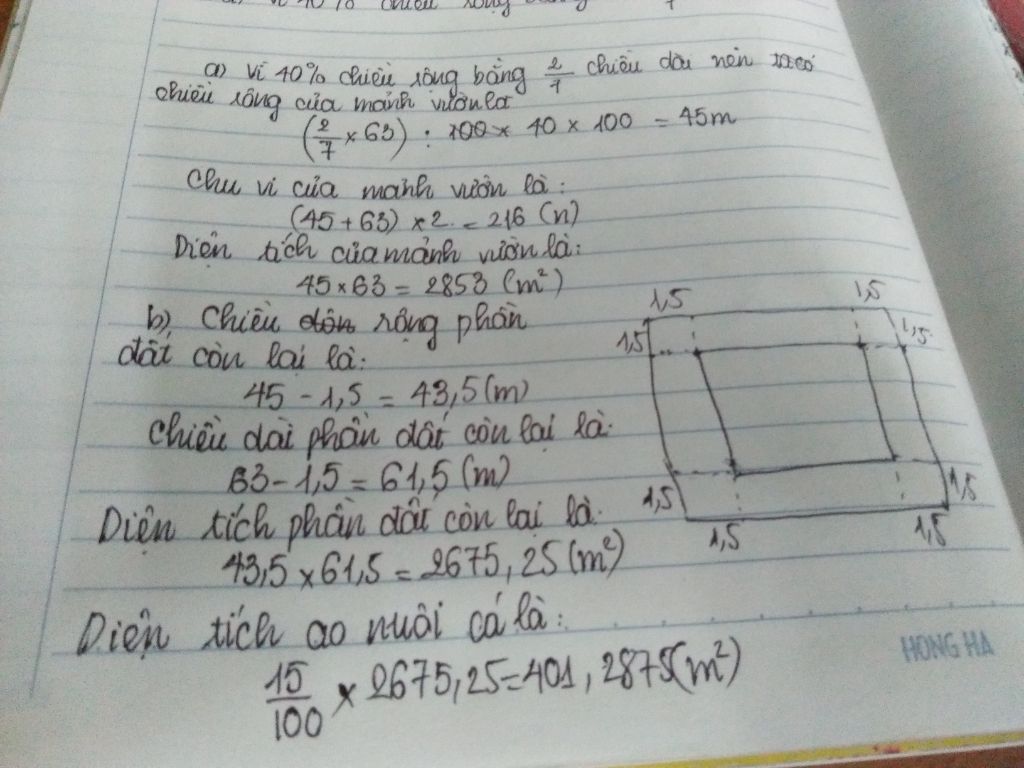 a) Vì 40% chiều rộng bằng 2/7 chiều dài nên
chiều rộng của mảnh vườn là
(2/7 × 63) : 40 × 100 = 45m
Chu vi của mảnh vườn là:
(45 + 63) × 2 = 216 (m)
Diện tích của mảnh vườn là:
45 × 63 = 2853 (m²)
b) Chiều rộng phần
đất còn lại là:
45 - 1,5 = 43,5 (m)
Chiều dài phần đất còn lại là:
63 - 1,5 = 61,5 (m)
Diện tích phần đất còn lại là:
43,5 × 61,5 = 2675,25 (m²)
Diện tích ao nuôi cá là:
15/100 × 2675,25 = 401,2875 (m²)
1,5 1,5
1,5 1,5
1,5 1,5
1,5 1,5
HONG HA